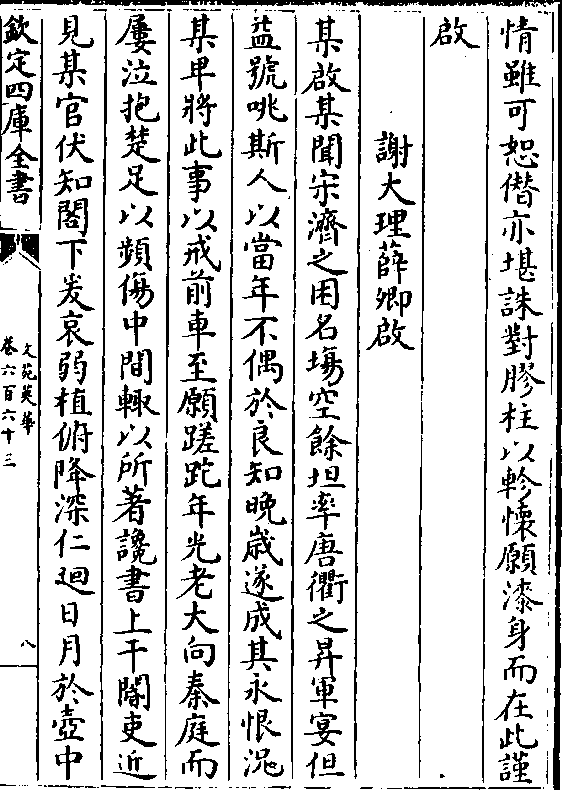 情雖可恕僭亦堪誅對膠柱以軫懷願漆身而在此謹
啟
謝大理薛卿啟
某啟某聞宋濟之困名塲空餘坦率唐衢之昇軍宴但
益號咷斯人以當年不偶於良知晚歳遂成其永恨況
某早將此事以戒前車至願蹉跎年光老大向秦庭而
屢泣抱楚足以頻傷中間輙以所著讒書上干閽吏近
見某官伏知閤下爰哀弱植俯降深仁廻日月於壺中
欽定四庫全書
文苑英華
卷六百六十三
八